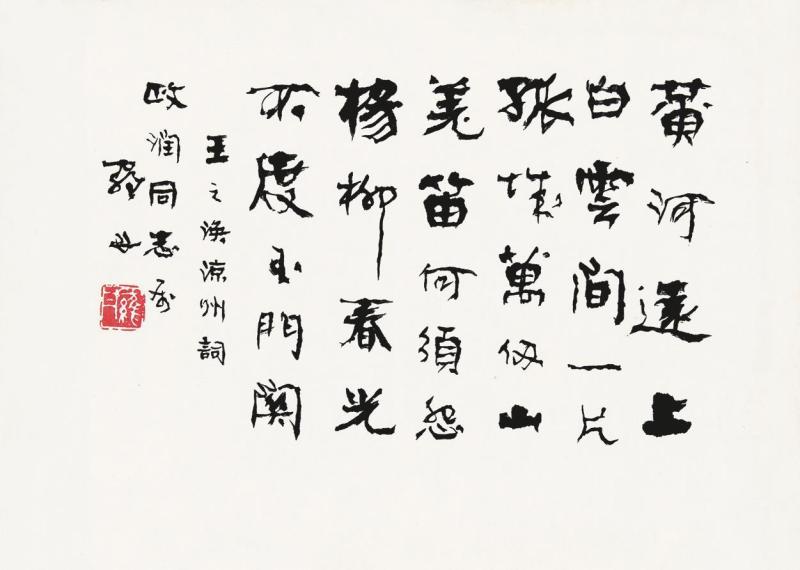 黃河遠上
白雲間一片
孤城萬仞山
羌笛何須怨
楊柳春光
不度玉門關
王之渙涼州詞
政潤同志
羅丹
羅丹